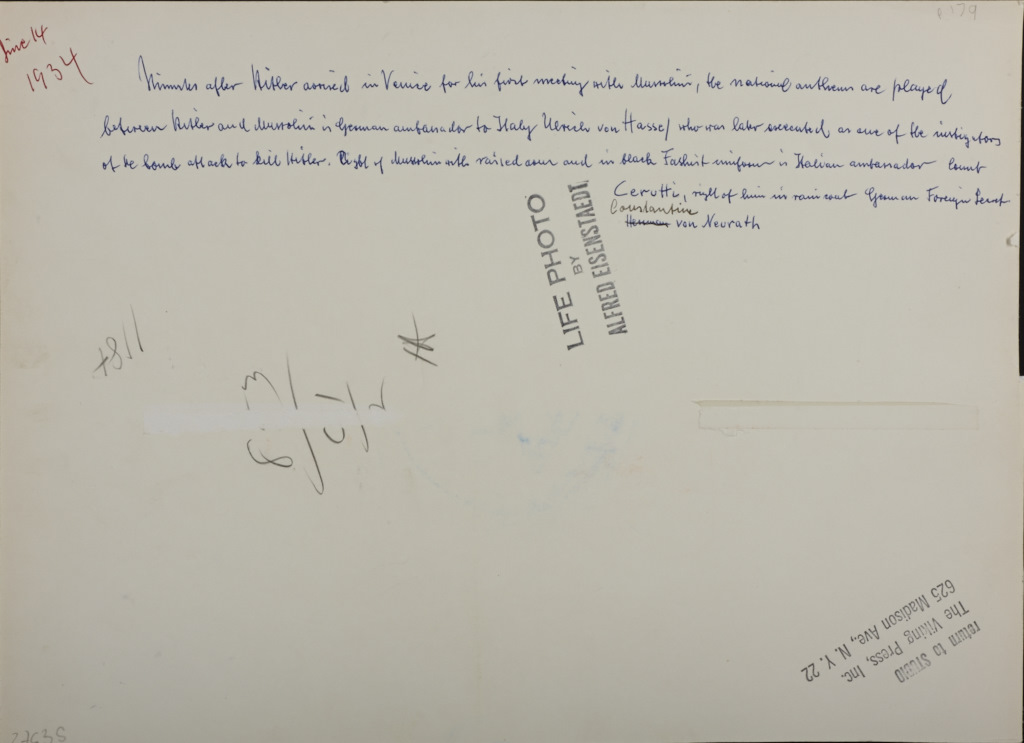 p. 179
June 14
1934
Minutes after Hitler arrived in Venice for his first meeting with Mussolini, the national anthems are played
between Hitler and Mussolini is German ambassador to Italy Ulrich von Hassel who was later executed as one of the instigators
of the bomb attack to kill Hitler. Right of Mussolini with raised arm and in black Fashist uniform is Italian ambassador Count
Cerutti, right of him in raincoat German Foreign Secret.
Constantin
Herman von Neurath
LIFE PHOTO
BY
ALFRED EISENSTAEDT
return to STUDIO
The Viking Press, Inc.
625 Madison Ave., N. Y. 22